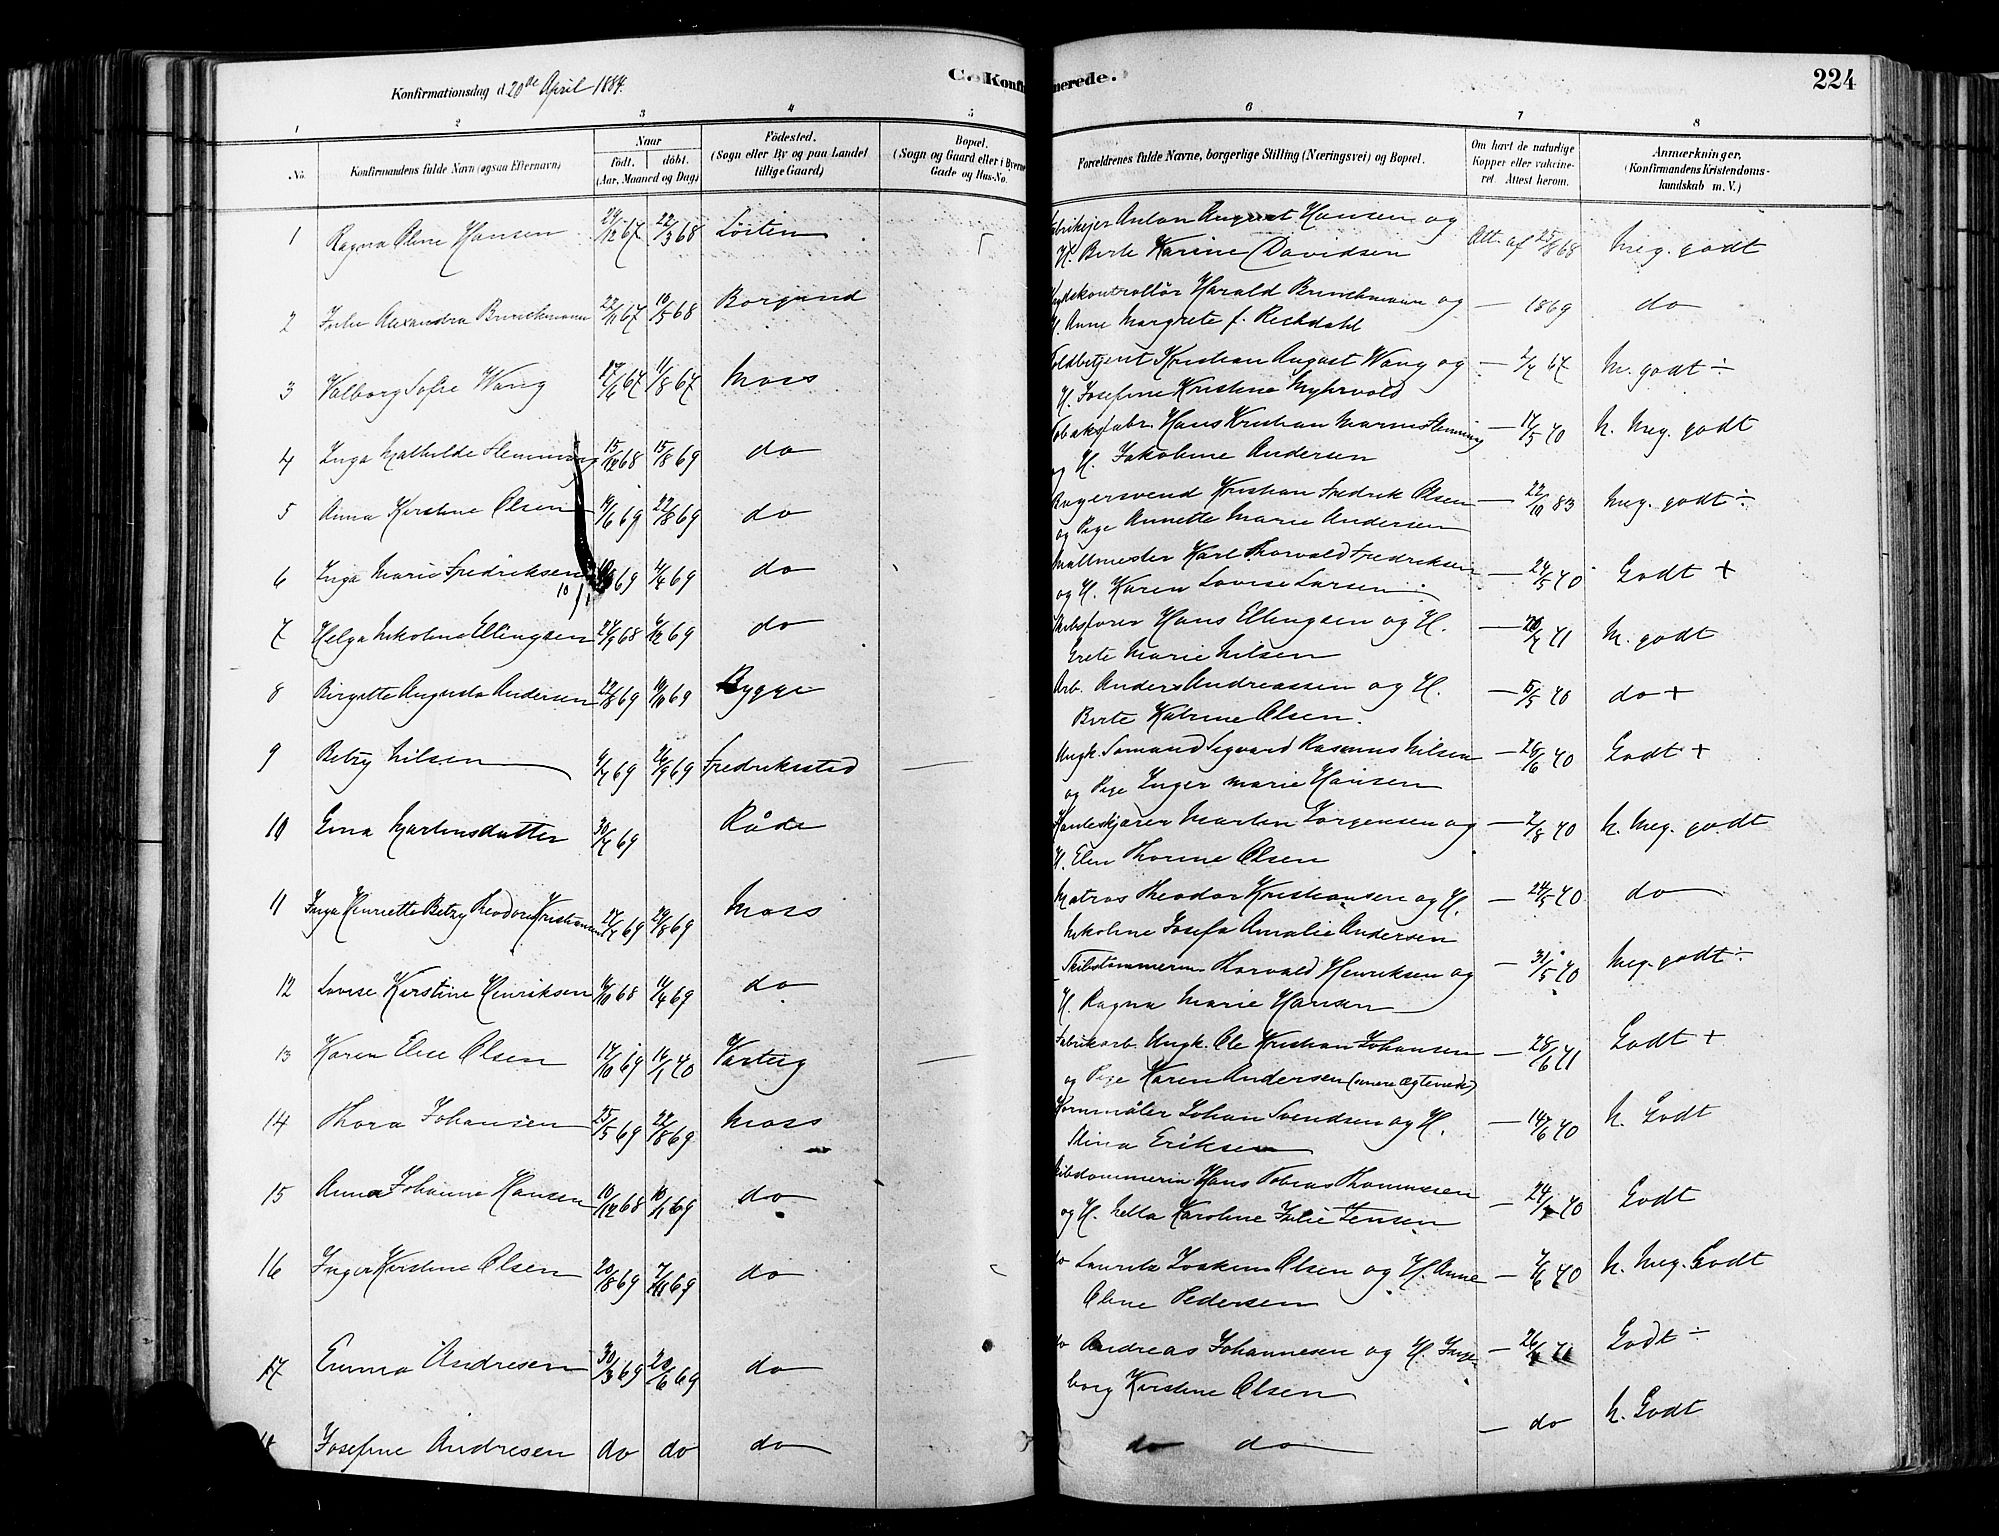 Konfirmationsdag d. 20de April 1884.
C. Konfirmerede.
224
1 2 3 4 5 6 7 8
No. Konfirmandens fulde Navn (ogsaa Efternavn) Naar født. døbt. (Aar, Maaned og Dag) Fødested. (Sogn eller By og paa Landet tillige Gaard) Bopæl. (Sogn og Gaard eller i Byerne Gade og Hus-No. Forældrenes fulde Navne, borgerlige Stilling (Næringsvei) og Bopæl. Om havt de naturlige Kopper eller vakcineret. Attest herom. Anmærkninger, (Konfirmandens Kristendomskundskab m. V.)
1 Ragna Oline Hansen 24/12 67 22/3 68 Løiten Anton August Hansen og Att. af 25/8 68 Meg. godt
H. Berte Karine Davidsen
2 Julie Alexandra Brinchmann 22/11 67 10/5 68 Borgund Harald Brinchmann og — 1869 do
H. Anne Margrete f.
3 Valborg Sofie Wang 27/6 67 11/8 67 Moss Toldbetjent Kristian August Wang og 67 M. godt ÷
H. Josefine Kristine Myhrvold
4 Inga Mathilde Flemming 15/12 68 15/8 69 do Hans Kristian Flemming — 17/5 70 N. Meg. godt
og H. Jakobine Andersen
5 Anna Kirstine Olsen 19/6 69 22/8 69 do Bagersvend Kristian Fredrik Olsen — 22/10 83 Meg. godt ÷
og Pige Annette Marie Andersen
6 Inga Marie Fredriksen 69 69 do Karl Thorvald Fredriksen — 24/5 70 Godt +
10/1
og H. Karen Lovise Larsen
7 Helga Nikoline Ellingsen 27/9 68 6/12 69 do Skibsfører Hans Ellingsen og H. 71 M. godt
Grete Marie Nilsen
8 Birgitte Augusta Andersen 22/8 69 10/10 69 Rygge Arb. Anders Andreassen og H. — 5/5 70 do +
Berte Katrine Olsen.
9 Betzy Nilsen 9/7 69 26/9 69 Fredriksstad — Ungk. Sømand Sigvard Rasmus Nilsen — 28/6 70 Godt +
og Pige Inger Marie Hansen
10 Ema Martinsdatter 30/7 69 Råde Martin Jørgensen og — 2/8 70 N. Meg. godt
H. Elen Thorine Olsen
11 Inga Henriette Betzy Teodora Kristiansen 27/7 69 29/8 69 Moss Matros Theodor Kristiansen og H. — 24/5 70 do
Nikoline Josefa Amalie Andersen
12 Lovise Kirstine Henriksen 10/10 68 11/4 69 do Skibstømmerm. Thorvald Henriksen og — 31/5 70 Meg. godt ÷
H. Ragna Marie Hansen
13 Karen Elise Olsen 17/10 69 14/1 70 — Fabrikarb. Ungk. Ole Kristian Johansen — 28/6 71 Godt +
og Pige Karen Andersen (senere Ægteviede)
14 Thora Johansen 25/5 69 22/8 69 Moss Kornmåler Johan Svendsen og H. — 14/6 70 N. Godt
Stina Eriksen
15 Anna Johanne Hansen 10/12 68 10/1 69 do Hans Tobias Thommesen — 24/5 70 Godt
og H. Netta Karoline Julie Jensen
16 Inger Kirstine Olsen 20/8 69 7/11 69 do do Laurits Joakim Olsen og H. Anne — 7/6 70 N. Meg. Godt
Oline Pedersen
17 Emma Andresen 30/3 69 20/6 69 do do Andreas Johannesen og H. Inge- Godt ÷
borg Kirstine Olsen
18 Josefine Andresen do do do do do — do N. Godt